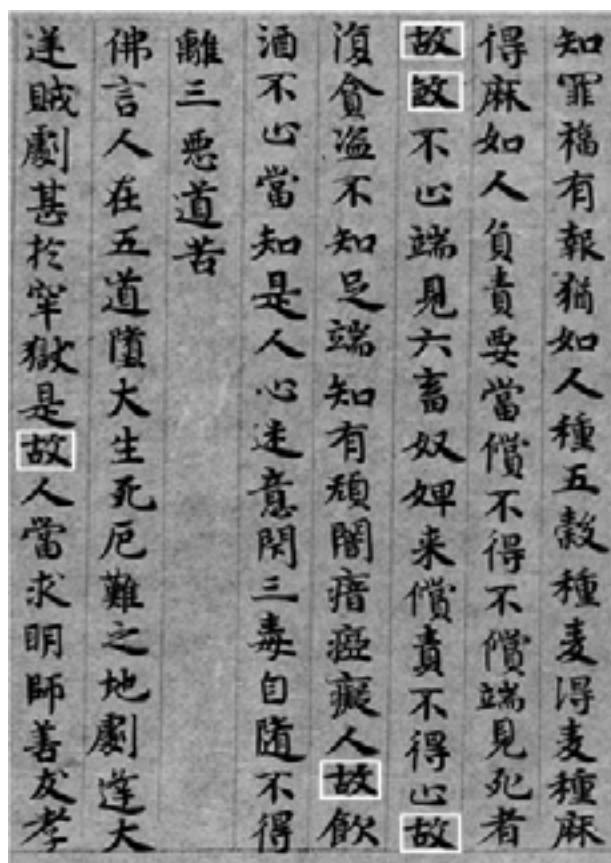 知罪福有報猶如人種五穀種麦得麦種麻
得麻如人負責要當償不得不償端見死者
故故不止端見六畜奴婢来償責不得止故
復貪盗不知足端知有頑闇瘖瘂癡人故飲
酒不止當知是人心迷意閇三毒自随不得
離三悪道苦
佛言人在五道堕大生死厄難之地劇逢大
逆賊劇甚於牢獄是故人當求明師善友孝